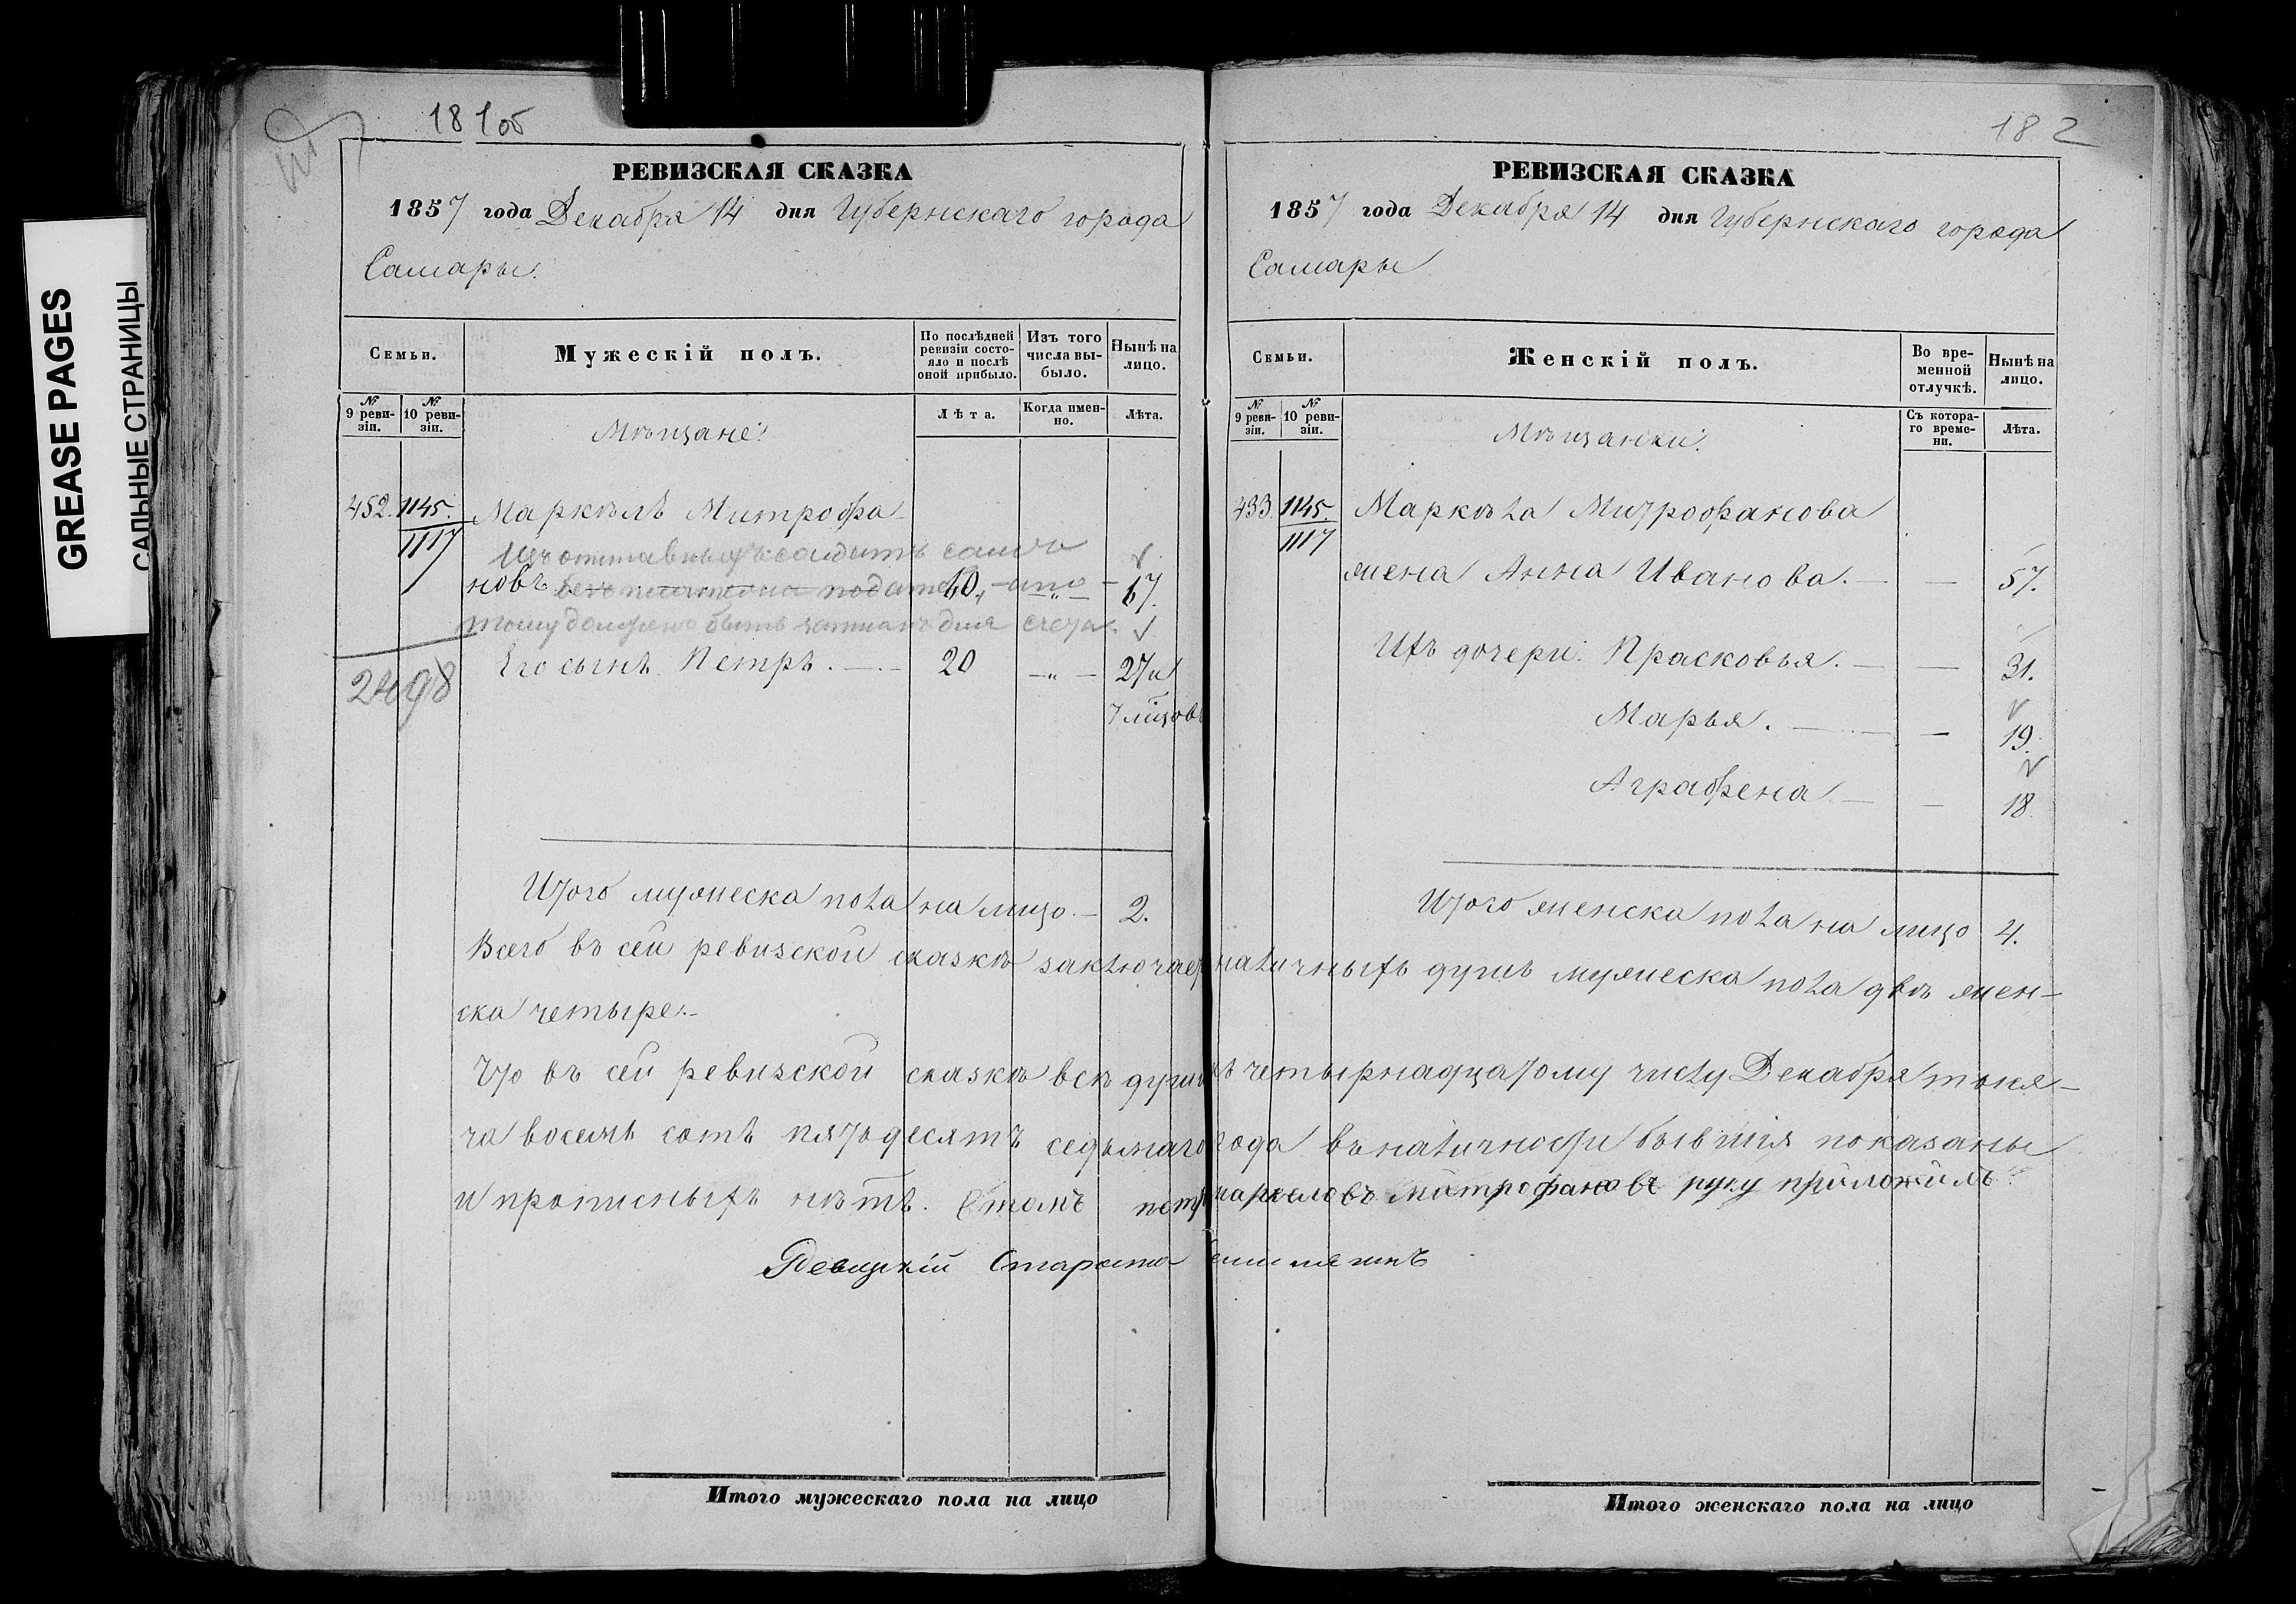 GREASE PAGES
САЛЬНЫЕ СТРАНИЦЫ
181об
РЕВИЗСКАЯ СКАЗКА
1857 года Декабря 14 дня Губернскаго города
Самары.
Семьи.
Мужескій полъ.
По послѣдней ревизіи состояло и послѣ оной прибыло.
Изъ того числа выбыло.
Нынѣ на лицо.
№ 9 ревизіи.
№ 10 ревизіи.
Мѣщане:
Лѣта.
Когда именно.
Лѣта.
452. 1145. Маркѣлъ Митрофа-
1117 Изъ отставныхъ солдатъ
новъ 60, —„— 67.
тому долженъ быть для счета.
Его сынъ Петръ. — 20 —„— 27 и
2498
7 мѣсяцовъ
Итого мужеска пола на лицо. — 2.
Всего въ сей ревизской сказкѣ заключается
ска четыре. —
Что въ сей ревизской сказкѣ всѣ души
ча восемь сотъ пятьдесятъ седьмаго
и прописныхъ нѣтъ. Втомъ петръ
Староста
Итого мужескаго пола на лицо
182
РЕВИЗСКАЯ СКАЗКА
1857 года Декабря 14 дня Губернскаго города
Самары
Семьи.
Женскій полъ.
Во временной отлучкѣ.
Нынѣ на лицо.
№ 9 ревизіи.
№ 10 ревизіи.
Мѣщанки:
Съ котораго времени.
Лѣта.
433. 1145. Маркѣла Митрофанова
1117
жена Анна Иванова. — — 57.
Ихъ дочери: Прасковья. — — 31.
Марья. — — 19.
Аграфена — — 18.
Итого женска пола на лицо 4.
наличныхъ душъ мужеска пола двѣ жен-
къ четырнадцатому числу Декабря тыся-
года въ наличности бывшія показаны
маркеловъ митрофановъ руку приложилъ
Итого женскаго пола на лицо